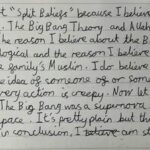 t "Split Beliefs" because I believe
. The Big Bang Theory and Allah
he reason I believe about the B
logical and the reason I believe
e family's Muslim. I do believe
e idea of someone of or some
very action is creepy. Now let
The Big Bang was a supernova
pace. It's pretty plain but th
in conclusion, I believe am st